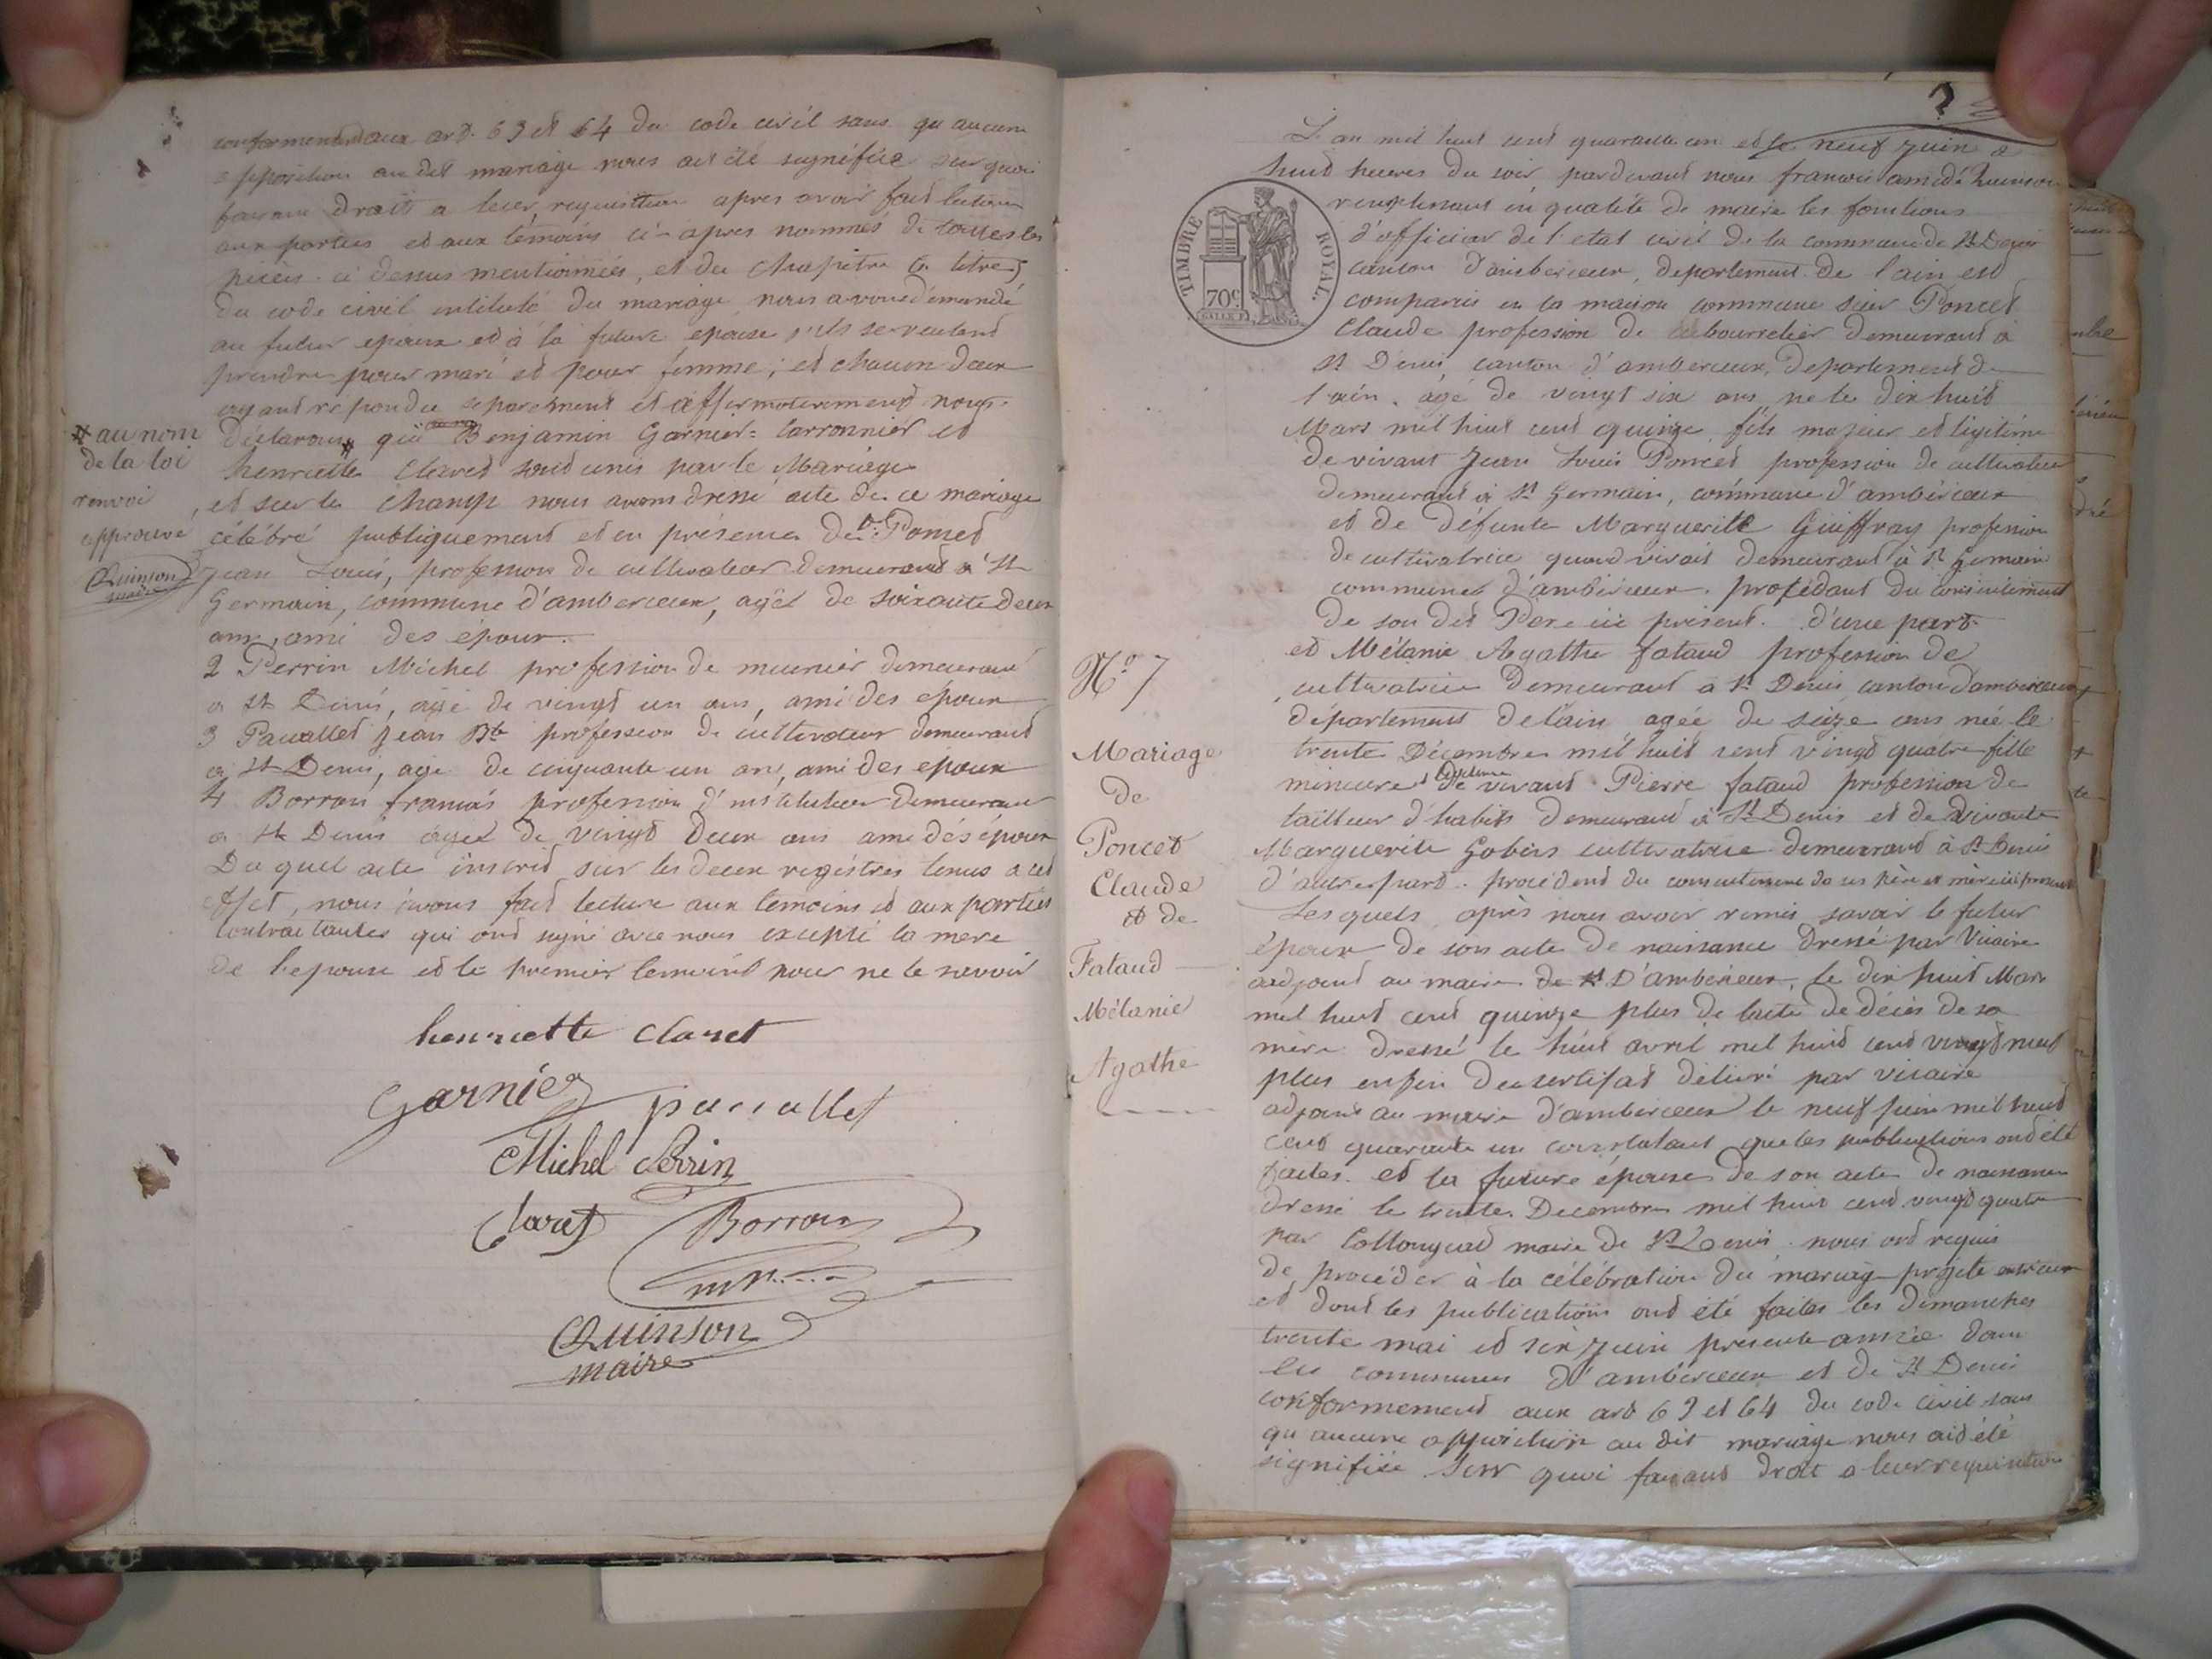 conformement aux art. 63 et 64 du code civil sans qu aucune
opposition au dit mariage nous ait été signifiée sur quoi
faisant droit a leur requisition apres avoir fait lecture
aux parties et aux temoins ci-apres nommés de toutes les
pieces ci dessus mentionnées, et du chapitre 6 titre 5
du code civil intitulé du mariage nous avons demandé
au futur epoux et à la future epouse s'ils se veulent
prendre pour mari et pour femme; et chacun d'eux
ayant répondu separement et affirmativement nous
déclarons que Benjamin Garnier=Carronnier et
henriette Claret sont unis par le Mariage
et sur le champ nous avons dressé acte de ce mariage
célébré publiquement et en présence de Poncet
Jean Louis, profession de cultivateur demeurant a St
Germain, commune d'amberieux, agé de soixante deux
ans, ami des époux.
2 Perrin Michel profession de meunier demeurant
a St Denis, agé de vingt un ans, ami des epoux
3 Pacallet Jean Bte profession de cultivateur demeurant
a St Denis, agé de cinquante un ans, ami des epoux
4 Borron francois profession d'instituteur demeurant
a St Denis agé de vingt deux ans ami des époux
Du quel acte inscrit sur les deux registres tenus a cet
effet, nous avons fait lecture aux temoins et aux parties
contractantes qui ont signé avec nous excepté la mere
de l'epouse et le premier temoins pour ne le savoir
# au nom
de la loi
renvoi
approuvé
Quinson
maire
henriette claret
Garnier
pacallet
Michel Perrin
Claret
Borron
Quinson
maire
L'an mil huit cent quarante un et le neuf juin a
huit heures du soir pardevant nous francois amédé Quinson
remplissant en qualité de maire les fonctions
d'officier de l'etat civil de la commune de St Denis
canton d'amberieux, departement de l'ain est
comparu en la maison commune sieur Poncet
Claude profession de bourrelier demeurant à
St Denis, canton d'amberieux, departement de
l'ain. agé de vingt six ans né le dix huit
Mars mil huit cent quinze fils majeur et légitime
de vivant Jean Louis Poncet profession de cultivateur
demeurant à St Germain, commune d'amberieux
et de défunte Marguerite Guiffray profession
de cultivatrice quand vivait demeurant à St Germain
commune d'amberieux. procédant du consentement
de son dit Pere ici présent. d'une part
et Mélanie Agathe fataud profession de
cultivatrice demeurant à St Denis canton d'amberieux
département de l'ain agée de seize ans née le
trente Décembre mil huit cent vingt quatre fille
mineure et légitime de vivant Pierre fataud profession de
tailleur d'habits demeurant à St Denis et de vivante
Marguerite Gobers cultivatrice demeurant à St Denis
d'autre part. procedant du consentement de ses père et mère ici present
Lesquels après nous avoir remis savoir le futur
époux de son acte de naissance dressé par Vicaire
adjoint au maire de St D'amberieux, le dix huit Mars
mil huit cent quinze plus de l'acte de décés de sa
mère dressé le huit avril mil huit cent vingt neuf
plus enfin du sertifat délivré par vicaire
adjoint au maire d'amberieux le neuf juin mil huit
cent quarante un constatant que les publications ont été
faites. et la future épouse de son acte de naissance
dressé le trente Decembre mil huit cent vingt quatre
par Collonguad maire de St Denis nous ont requis
de procéder à la célébration du mariage projeté entr'eux
et dont les publications ont été faites les dimanches
trente mai et six juin presente année dans
les communes d'amberieux et de St Denis
conformement aux art 63 et 64 du code civil sans
qu aucune opposition au dit mariage nous ait été
signifiée. Sur quoi faisant droit a leur requisition
TIMBRE ROYAL
70c
No 7
Mariage
de
Poncet
Claude
et de
Fataud
Mélanie
Agathe